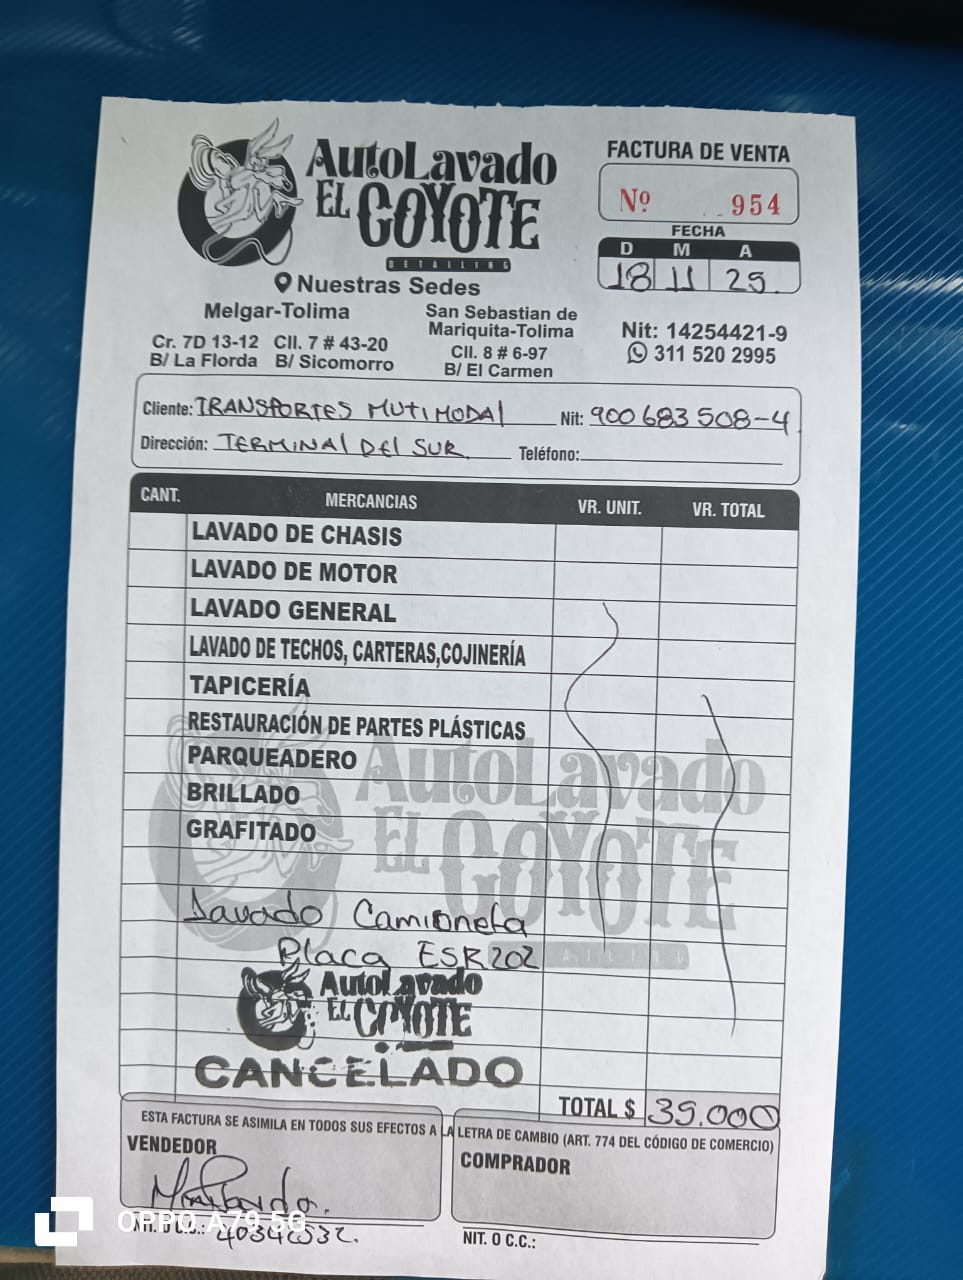 AutoLavado
EL COYOTE
DETAILING
FACTURA DE VENTA
Nº 954
FECHA
D M A
18 11 25
Nuestras Sedes
Melgar-Tolima
Cr. 7D 13-12 Cll. 7 # 43-20
B/ La Florda B/ Sicomorro
San Sebastian de
Mariquita-Tolima
Cll. 8 # 6-97
B/ El Carmen
Nit: 14254421-9
311 520 2995
Cliente: TRANSPORTES MUTIMODAL Nit: 900 683 508-4
Dirección: TERMINAL DEL SUR. Teléfono:
CANT. MERCANCIAS VR. UNIT. VR. TOTAL
LAVADO DE CHASIS
LAVADO DE MOTOR
LAVADO GENERAL
LAVADO DE TECHOS, CARTERAS,COJINERÍA
TAPICERÍA
RESTAURACIÓN DE PARTES PLÁSTICAS
PARQUEADERO
BRILLADO
GRAFITADO
AutoLavado
EL COYOTE
Lavado Camioneta
Placa ESR202
AutoLavado
EL COYOTE
CANCELADO
TOTAL $ 39.000
ESTA FACTURA SE ASIMILA EN TODOS SUS EFECTOS A LA LETRA DE CAMBIO (ART. 774 DEL CÓDIGO DE COMERCIO)
VENDEDOR
COMPRADOR
NIT. O C.C.:
OPPO A79 5G